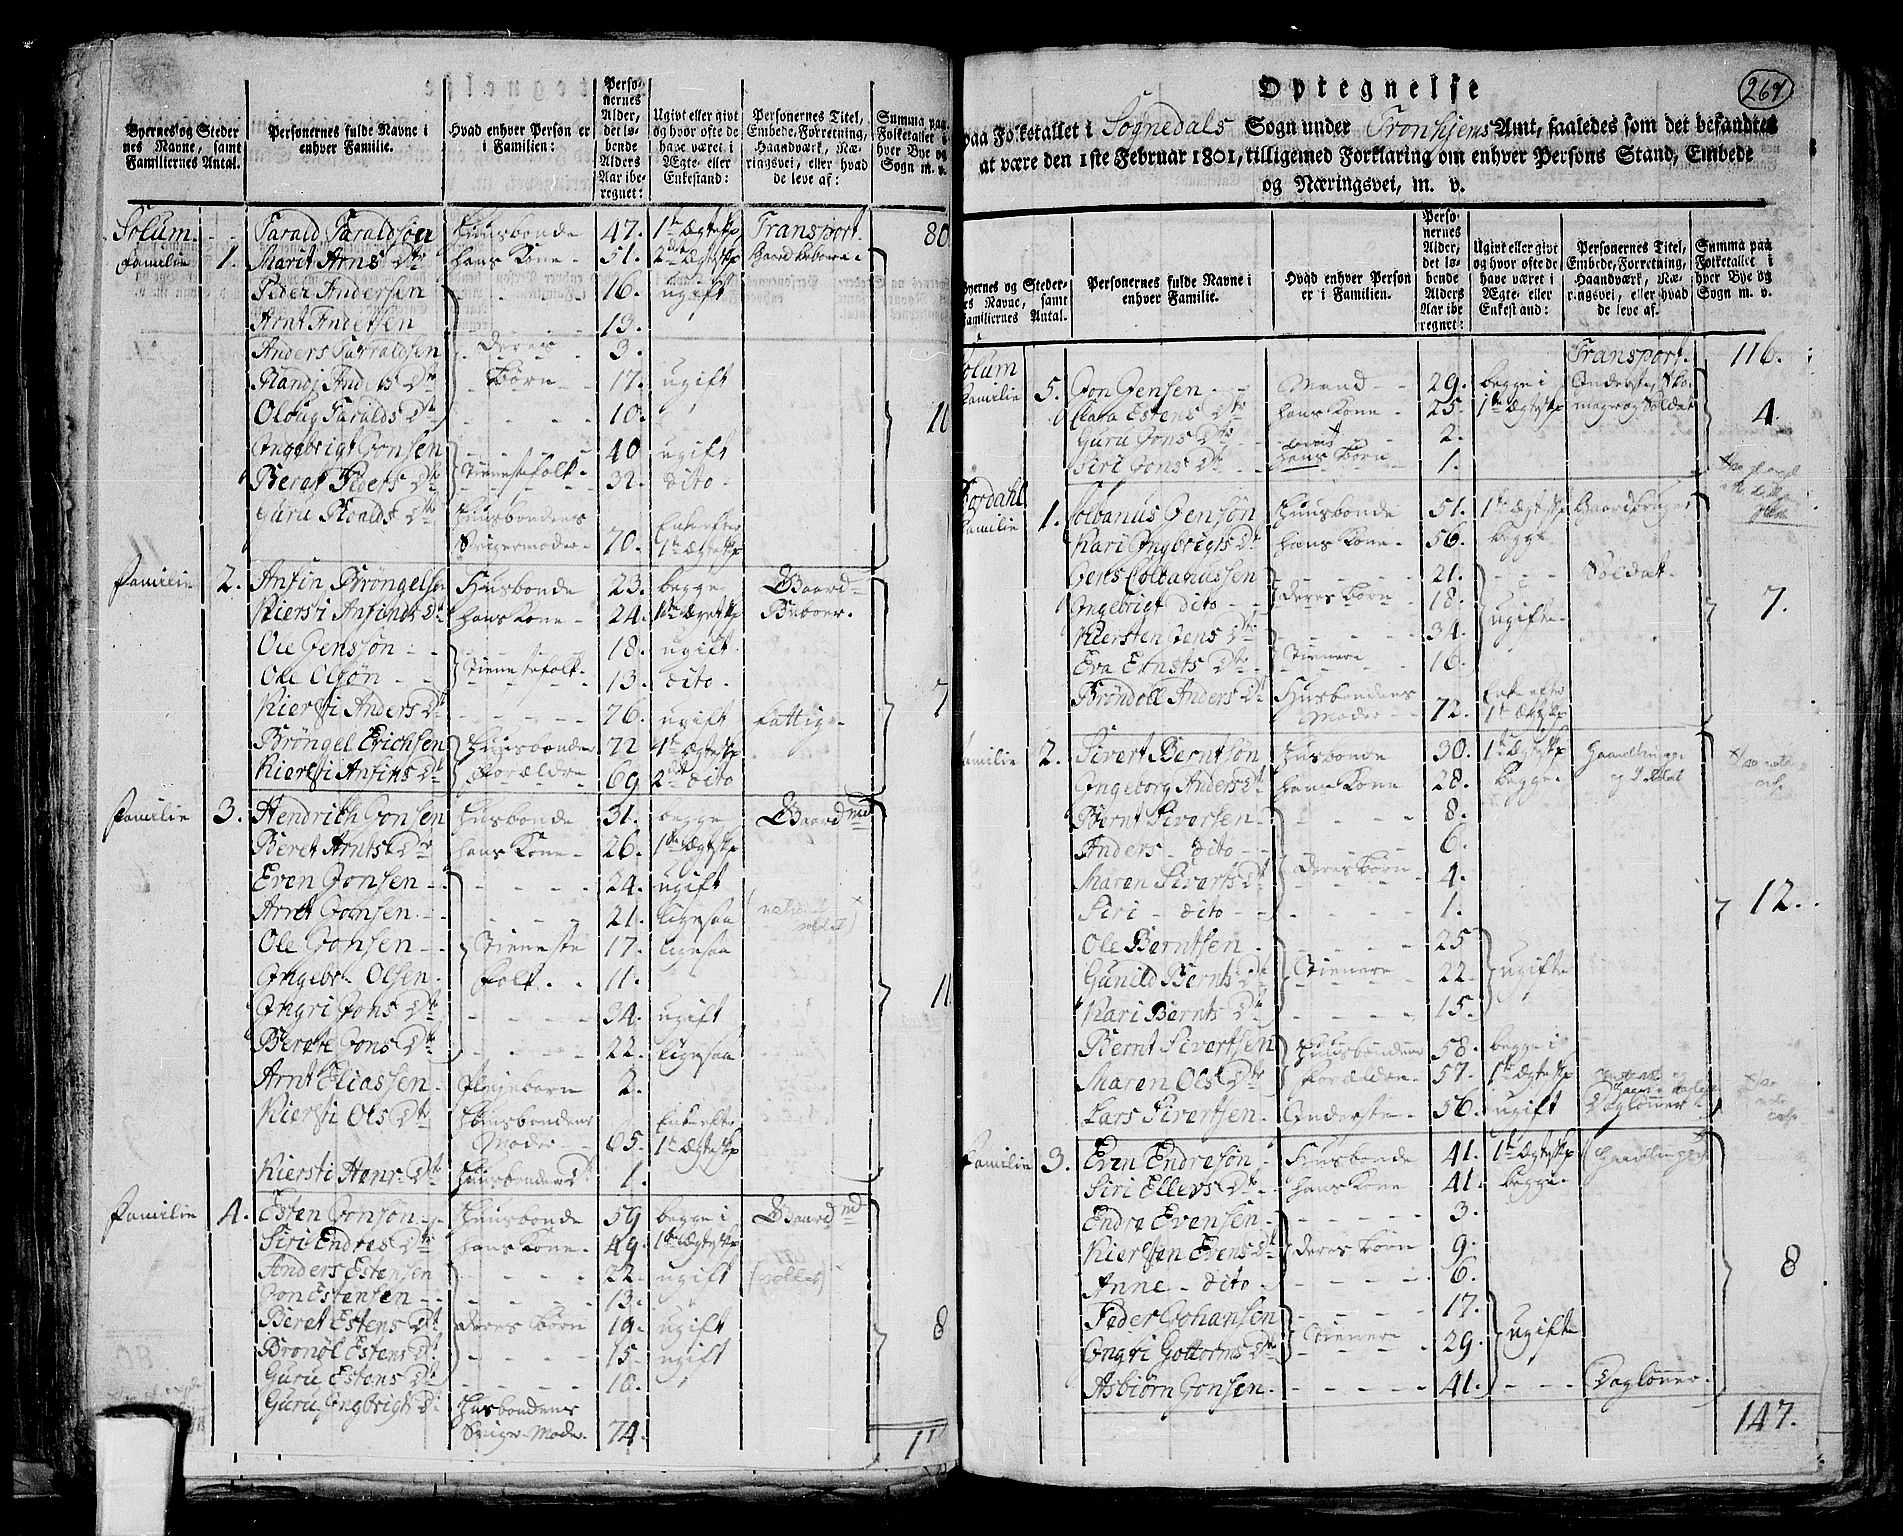 Byernes og Steder
nes Navne, samt
Familiernes Antal.
Personernes fulde Navne i
enhver Familie.
Hvad enhver Person er
i Familien:
Perso-
nernes
Alder,
det lø-
bende
Alders
Aar ibe-
regnet:
Ugivt eller givt
og hvor ofte de
have været i
Ægte- eller
Enkestand:
Personernes Titel,
Embede, Forretning,
Haandværk, Næ-
ringsvei, eller hvad
de leve af:
Summa paa
Folketallet i
hver Bye og
Sogn m. v.
Solum. Tarald Taraldsøn Huusbonde 47. 1te Ægteskp Transport 80
Familie 1. Marit Arns Dtr hans Kone 51. 2det Ægteskp Gaard beboere
Peder Andersen 16. ugift
Arnt Andersen 13.
Anders Tarraldsen Deres 3.
Randi Anders Dtr Børn 17. ugift
Oloug Taralds Dtr 10. 10
Ingebrigt Jonsen 40 ugift
Beret Peders Dtr Tienestefolk 32. dito
Guru Roalds Dtr Huusbondens Enke efter
Svigermoder 70. 1te Ægteskp
Familie 2. Anfin Brøngelsø Husbonde 23. begge Gaard-
Kiersti Anfinds Dtr hans Kone 24. 1te Ægteskp Beboer.
Ole Jenssøn 18. ugift
Ole Olsøn Tienestefolk 13. dito
Kiersti Anders Dtr 76. ugift fattig 7
Brøngel Erichsen Huusbondes 72 1te Ægteskp
Kiersti Anfins Dtr Forældre 69 2det dito
Familie 3. Hendrich Jonsen Husbonde 31. begge Gaardmd
Beret Arnts Dtr hans Kone 26. 1te Ægteskp
Even Jonsen 24. ugift
Arnt Jonsen 21. ligesaa (national soldat)
Ole Jonsen Tieneste 17. ligesaa
Ingebr. Olsen folk 11.
Ingri Jons Dtr 34. ugift 11
Beret Jons Dtr 22. ligesaa
Arnt Eliassen Pleiebarn 2.
Kiersti Ols Dtr Huusbondens Enke efter
Moder 65. 1te Ægteskp
Kiersti Henr. Dtr Huusbondens Dt 1.
Familie 4. Esten Jonsøn Huusbonde 59 begge i Gaardmd
Siri Endres Dtr hans Kone 49. 1te Ægteskp
Anders Estensen 22. ugift (soldat)
Jon Estensen 13.
Beret Estens Dt Deres Børn 19. ugift 8
Bronøl Estens Dt 15. ugift
Guru Estens Dt 10.
Guru Ingbrigts Dt Husbondens
Sviger-Moder 74.
11
264
Optegnelse
paa Folketallet i Sognedals Sogn under Tronhjems Amt, saaledes som det befandtes
at være den 1ste Februar 1801, tilligemed Forklaring om enhver Persons Stand, Embede
og Næringsvei, m. v.
Byernes og Steder-
nes Navne, samt
Familiernes Antal.
Personernes fulde Navne i
enhver Familie.
Hvad enhver Person
er i Familien.
Perso-
nernes
Alder,
det lø-
bende
Alders
Aar ibe-
regnet:
Ugivt eller givt
og hvor ofte de
have været i
Ægte- eller
Enkestand:
Personernes Titel,
Embede, Forretning,
Haandværk, Næ-
ringsvei, eller hvad
de leve af.
Summa paa
Folketallet i
hver Bye og
Sogn m. v.
Transport. 116.
Solum
Familie 5. Jon Jensen Mand 29. begge i Inderste, Sko-
Clara Estens Dtr hans Kone 25. 1te Ægteskp mager og Soldat 4.
Guru Jons Dtr 2.
Siri Jons Dt hans Børn 1.
Fordahl
Familie 1. Colbanus Jensøn Huusbonde 51. 1te Ægteskp Gaardbruger
Kari Ingbrigts Dt hans Kone 56. begge
Jens Colbanussen 21. Soldat.
Ingebrigt dito Deres Børn 18. 7.
Kiersten Jens Dtr 34. ugifte
Eva Ernsts Dtr Tienere 16
Brøndoll Anders Dt Husbondens Enke efter
Moder 72. 1te Ægteskp
Familie 2. Sivert Berntsøn Husbonde 30. 1te Ægteskp Gaardbruger
Ingeborg Anders Dt hans Kone 28. begge og Soldat
Bernt Sivertsen 8.
Anders dito 6.
Maren Siverts Dt Deres Børn 4.
Siri dito 1. 12.
Ole Berntsen 25
Gunild Bernts Dt Tienere 22. ugifte
Kari Bernts Dt 15.
Bernt Sivertsen Huusbondens 58. begge i
Maren Ols Dtr Forældre 57. 1te Ægteskp
Lars Sivertsen Inderste 56. ugift Daglønner
Familie 3. Even Endresøn Husbonde 41. 1te Ægteskp Gaardbruger
Siri Ellers Dt hans Kone 41. begge
Endre Evensen 3.
Kiersten Evens Dt Deres Børn 9.
Anne dito 6. 8
Peder Johansen 17.
Ingri Gottorms Dtr Tienere 29. ugifte
Asbiørn Jonsen 41. Daglønner.
147.